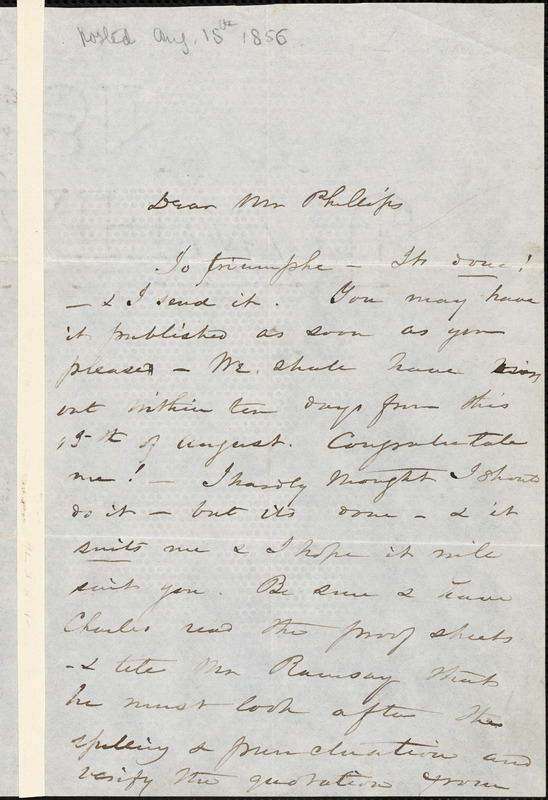 posted Aug. 15th 1856
Dear Mr Phillips
Io triumphe — Its done!
— & I send it. You may have
it published as soon as you
please — We shale have
out within ten days from this
15th of august. Congratulate
me! — I hardly thought I should
do it — but its done — & it
suits me & I hope it will
suit you. Be sure & have
Charles read the proof sheets
— & tell Mr Ramsay that
he must look after the
spelling & punctuation and
verify the quotation from